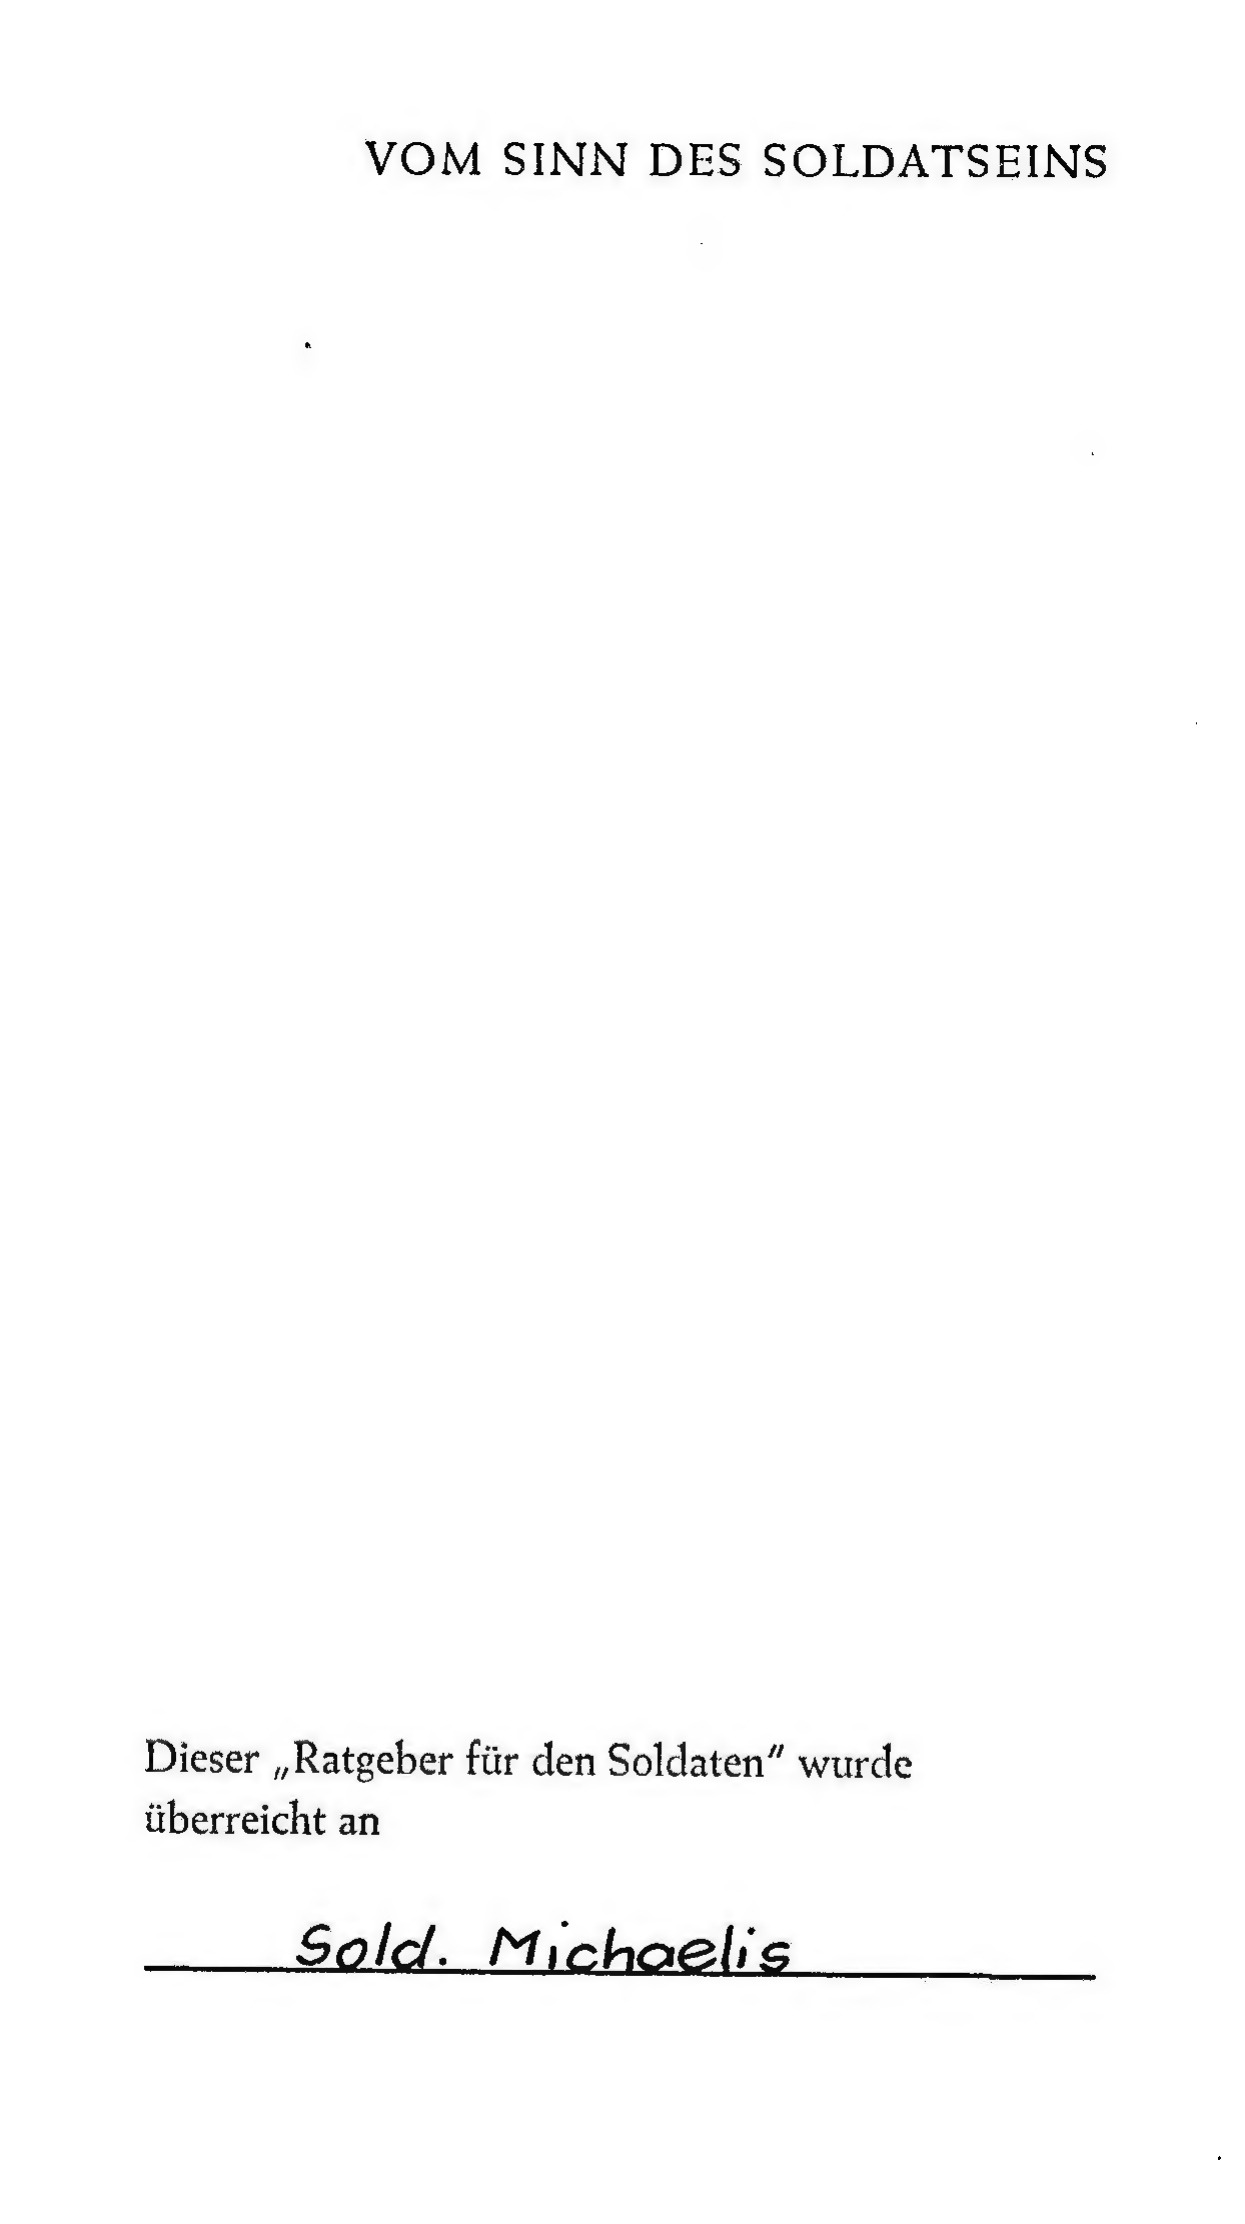 VOM SINN DES SOLDATSEINS
Dieser „Ratgeber für den Soldaten" wurde
überreicht an
Sold. Michaelis